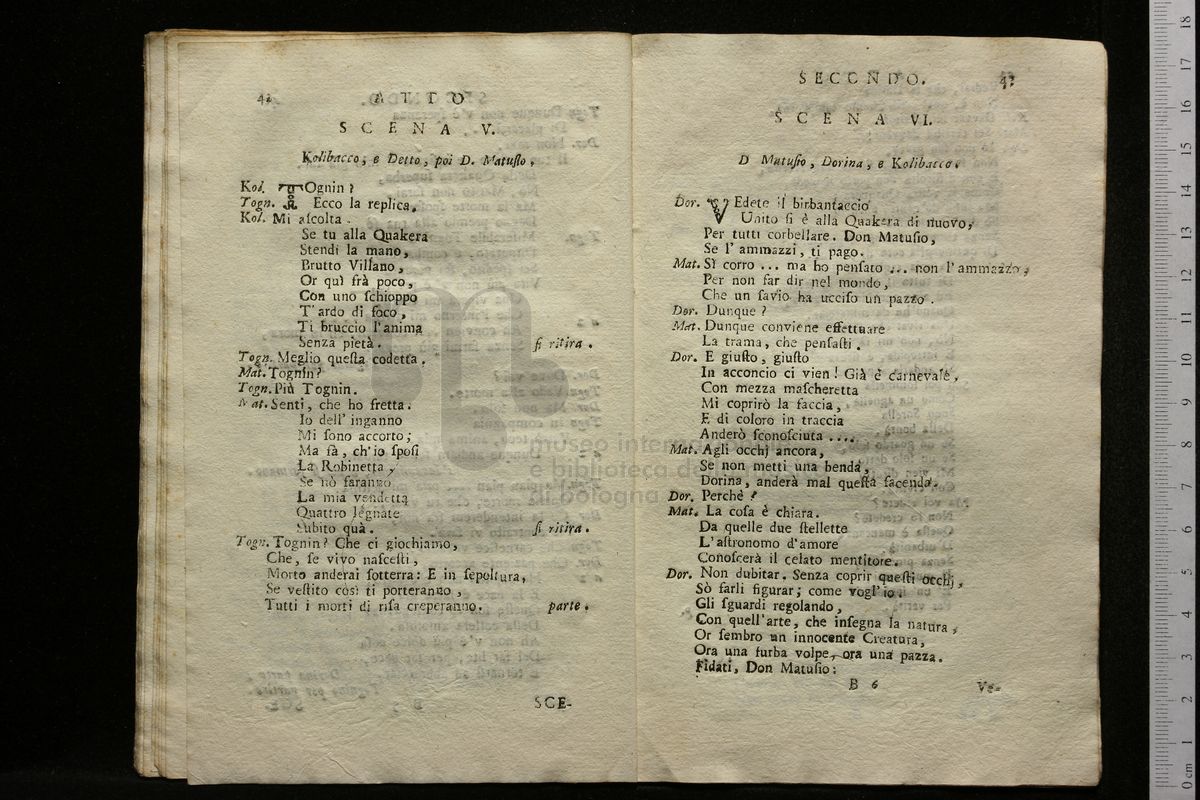 42 ATTO
SCENA V.
Kolibacco, e Detto, poi D. Matusio.
Kol. TOgnin?
Togn. Ecco la replica.
Kol. Mi ascolta.
Se tu alla Quakera
Stendi la mano,
Brutto Villano,
Or quì frà poco,
Con uno schioppo
T'ardo di foco,
Ti bruccio l'anima
Senza pietà. si ritira.
Togn. Meglio questa codetta.
Mat. Tognin?
Togn. Più Tognin.
Mat. Senti, che ho fretta.
Io dell' inganno
Mi sono accorto;
Ma fà, ch'io sposi
La Robinetta,
Se nò faranno
La mia vendetta
Quattro legnate
Subito quà. si ritira.
Togn. Tognin? Che ci giochiamo,
Che, se vivo nascesti,
Morto anderai sotterra: E in sepoltura,
Se vestito così ti porteranno,
Tutti i morti di risa creperanno. parte.
SCE-
SECONDO. 43
SCENA VI.
D Matusio, Dorina, e Kolibacco.
Dor. VEdete il birbantaccio
Unito si è alla Quakera di nuovo,
Per tutti corbellare. Don Matusio,
Se l' ammazzi, ti pago.
Mat. Sì corro ... ma ho pensato ... non l'ammazzo,
Per non far dir nel mondo,
Che un savio ha ucciso un pazzo.
Dor. Dunque?
Mat. Dunque conviene effettuare
La trama, che pensasti.
Dor. E giusto, giusto
In acconcio ci vien! Già è carnevale,
Con mezza mascheretta
Mi coprirò la faccia,
E di coloro in traccia
Anderò sconosciuta ....
Mat. Agli occhj ancora,
Se non metti una benda,
Dorina, anderà mal questa facenda.
Dor. Perchè?
Mat. La cosa è chiara.
Da quelle due stellette
L'astronomo d'amore
Conoscerà il celato mentitore.
Dor. Non dubitar. Senza coprir questi occhj,
Sò farli figurar; come vogl'io.
Gli sguardi regolando,
Con quell'arte, che insegna la natura,
Or sembro un innocente Creatura,
Ora una furba volpe, ora una pazza.
Fidati, Don Matusio:
B 6 Ve-